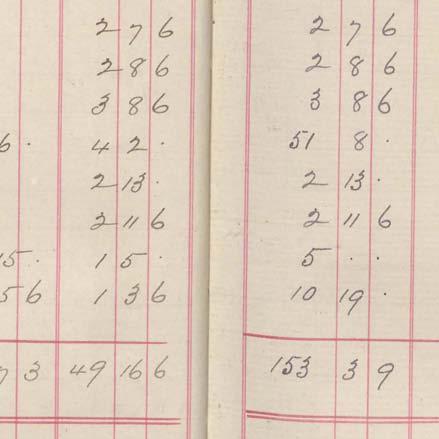 2 7 6 2 7 6
2 8 6 2 8 6
3 8 6 3 8 6
6 . 4 2 . 51 8 .
2 13 . 2 13 .
2 11 6 2 11 6
15 . 1 5 . 5 . .
5 6 1 3 6 10 19 .
7 3 49 16 6 153 3 9